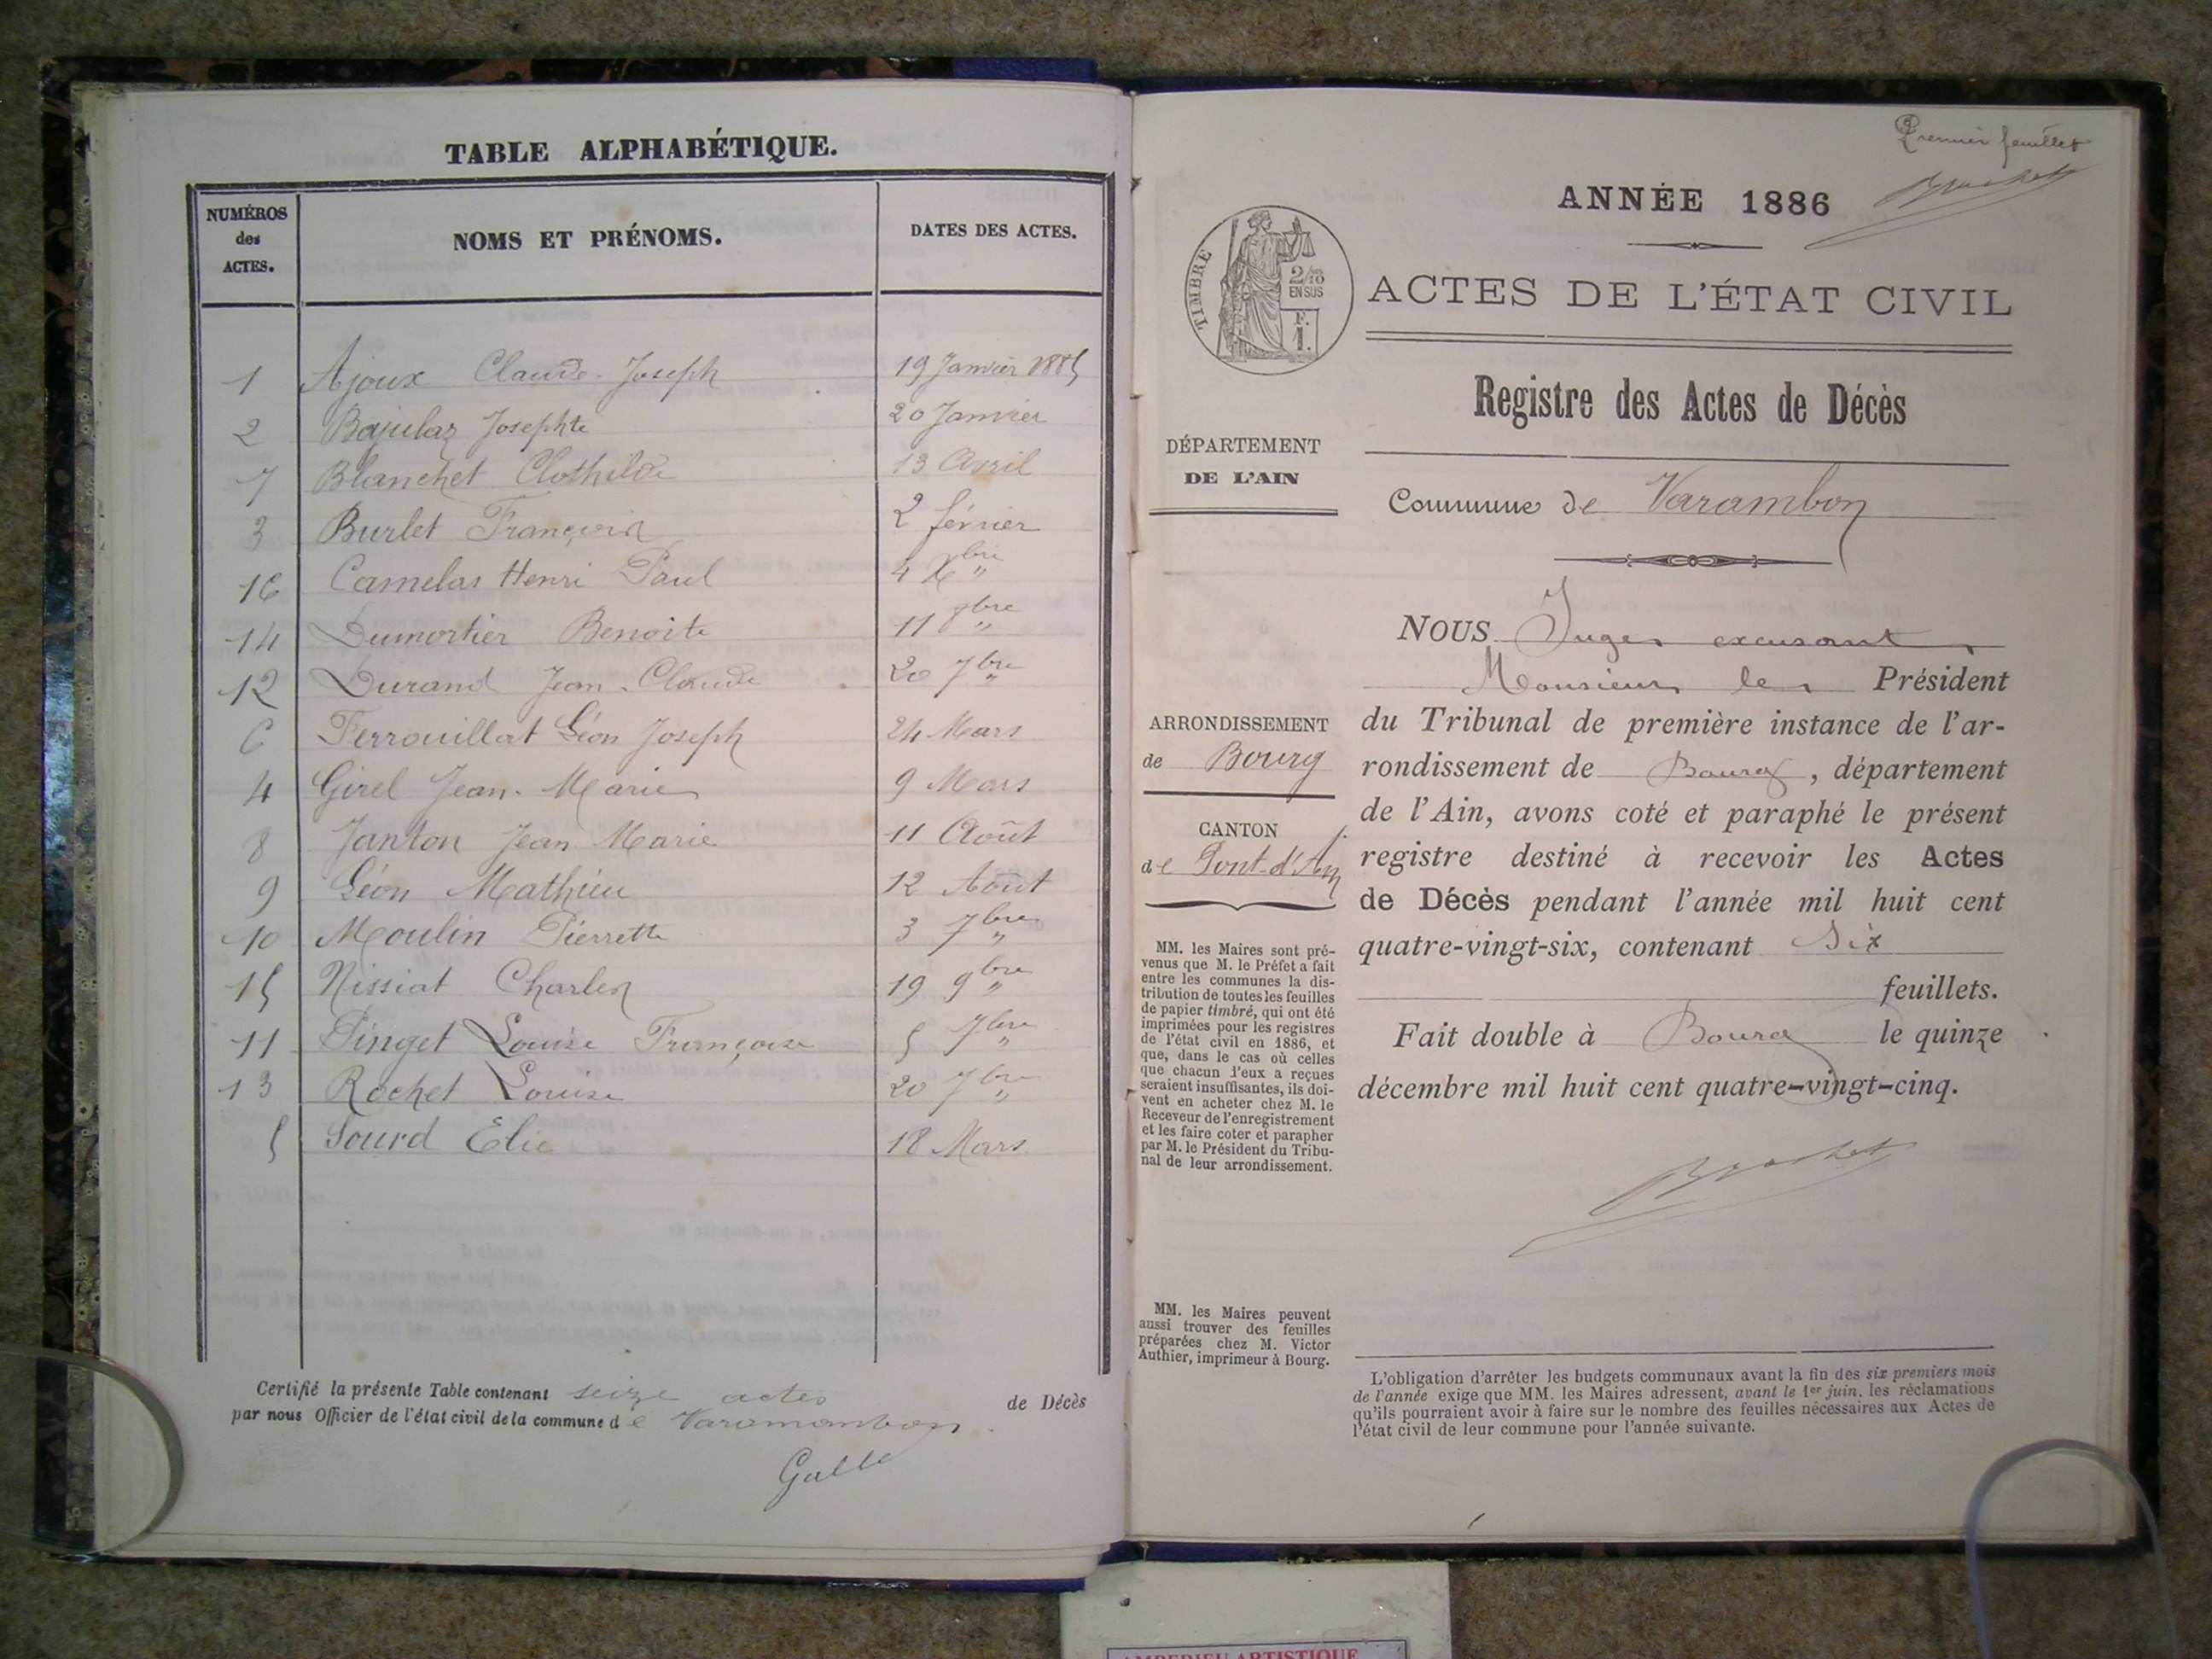 TABLE ALPHABÉTIQUE.
NUMÉROS des ACTES. NOMS ET PRÉNOMS. DATES DES ACTES.
1 Ajoux Claude-Joseph 19 Janvier 1885
2 Bajulaz Josephte 20 Janvier
7 Blanchet Clothilde 13 Avril
3 Burlet François 2 février
16 Camelas Henri Paul 4 Xbre "
14 Dumortier Benoite 11 8bre "
12 Durand Jean-Claude 20 7bre "
6 Ferrouillat Léon Joseph 24 Mars
4 Girel Jean-Marie 9 Mars
8 Janton Jean Marie 11 Août
9 Léon Mathieu 12 Août
10 Moulin Pierrette 3 7bre "
15 Nissiat Charles 19 9bre "
11 Pinget Louise Françoise 5 7bre "
13 Rochet Louise 20 7bre "
5 Sourd Elie 18 Mars
Certifié la présente Table contenant seize actes de Décès
par nous Officier de l'état civil de la commune de Varamambon
Premier feuillet
ANNÉE 1886
TIMBRE
2/10
EN SUS
F.
1.
ACTES DE L'ÉTAT CIVIL
Registre des Actes de Décès
DÉPARTEMENT
DE L'AIN
Commune de Varambon
NOUS Juge excusant
Monsieur le Président
du Tribunal de première instance de l'ar-
rondissement de Bourg, département
de l'Ain, avons coté et paraphé le présent
registre destiné à recevoir les Actes
de Décès pendant l'année mil huit cent
quatre-vingt-six, contenant Six
feuillets.
Fait double à Bourg le quinze
décembre mil huit cent quatre-vingt-cinq.
ARRONDISSEMENT
de Bourg
CANTON
de Pont-d'Ain
MM. les Maires sont pré-
venus que M. le Préfet a fait
entre les communes la dis-
tribution de toutes les feuilles
de papier timbré, qui ont été
imprimées pour les registres
de l'état civil en 1886, et
que, dans le cas où celles
que chacun d'eux a reçues
seraient insuffisantes, ils doi-
vent en acheter chez M. le
Receveur de l'enregistrement
et les faire coter et parapher
par M. le Président du Tribu-
nal de leur arrondissement.
MM. les Maires peuvent
aussi trouver des feuilles
préparées chez M. Victor
Authier, imprimeur à Bourg.
L'obligation d'arrêter les budgets communaux avant la fin des six premiers mois
de l'année exige que MM. les Maires adressent, avant le 1er juin, les réclamations
qu'ils pourraient avoir à faire sur le nombre des feuilles nécessaires aux Actes de
l'état civil de leur commune pour l'année suivante.